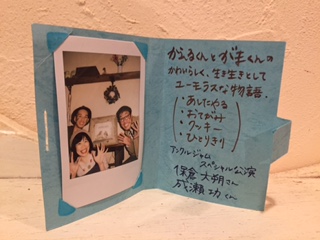 がえるくんとがまくんの
かわいらしく、生き生きとして
ユーモラスな物語。
・あしたやる
・おてがみ
・クッキー
・ひとりきり
アンクルジャム
スペシャル公演
保倉大朔さん
成瀬功くん